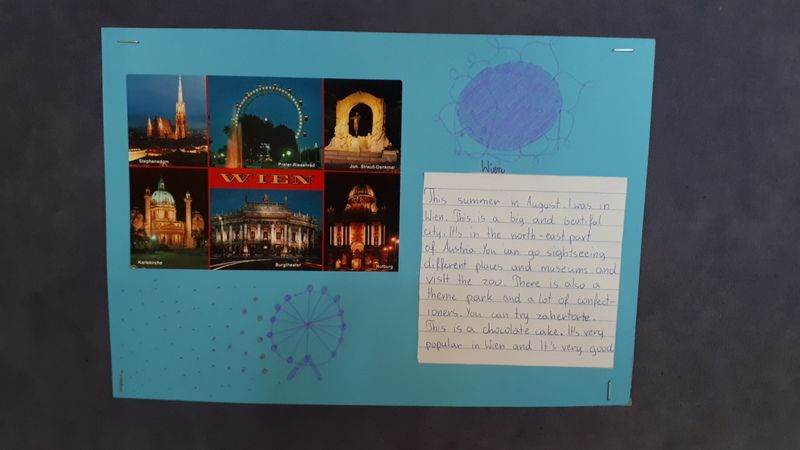 Stephansdom
Prater-Riesenrad
Joh. Strauß-Denkmal
WIEN
Karlskirche
Burgtheater
Hofburg
Wien
This summer in August. I was in
Wien. This is a big and beatiful
city. It's in the north-east part
of Austria You can go sightseeing
different places and museums and
visit the zoo. There is also a
theme park and a lot of confect-
ioners. You can try zahertorte.
This is a chocolate cake. It's very
popular in Wien and It's very good